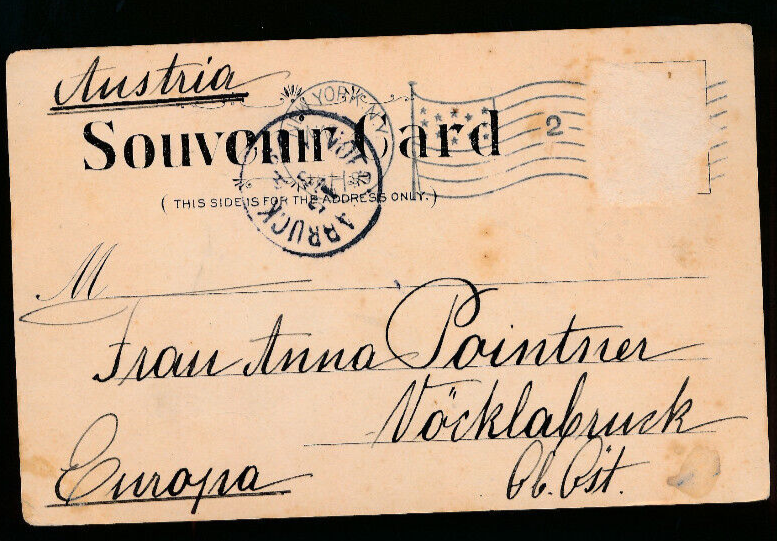 Austria
Souvenir Card
( THIS SIDE IS FOR THE ADDRESS ONLY. )
NEW YORK, N.Y.
2
M
Frau Anna Pointner
Vöcklabruck
Europa
Ob. Öst.